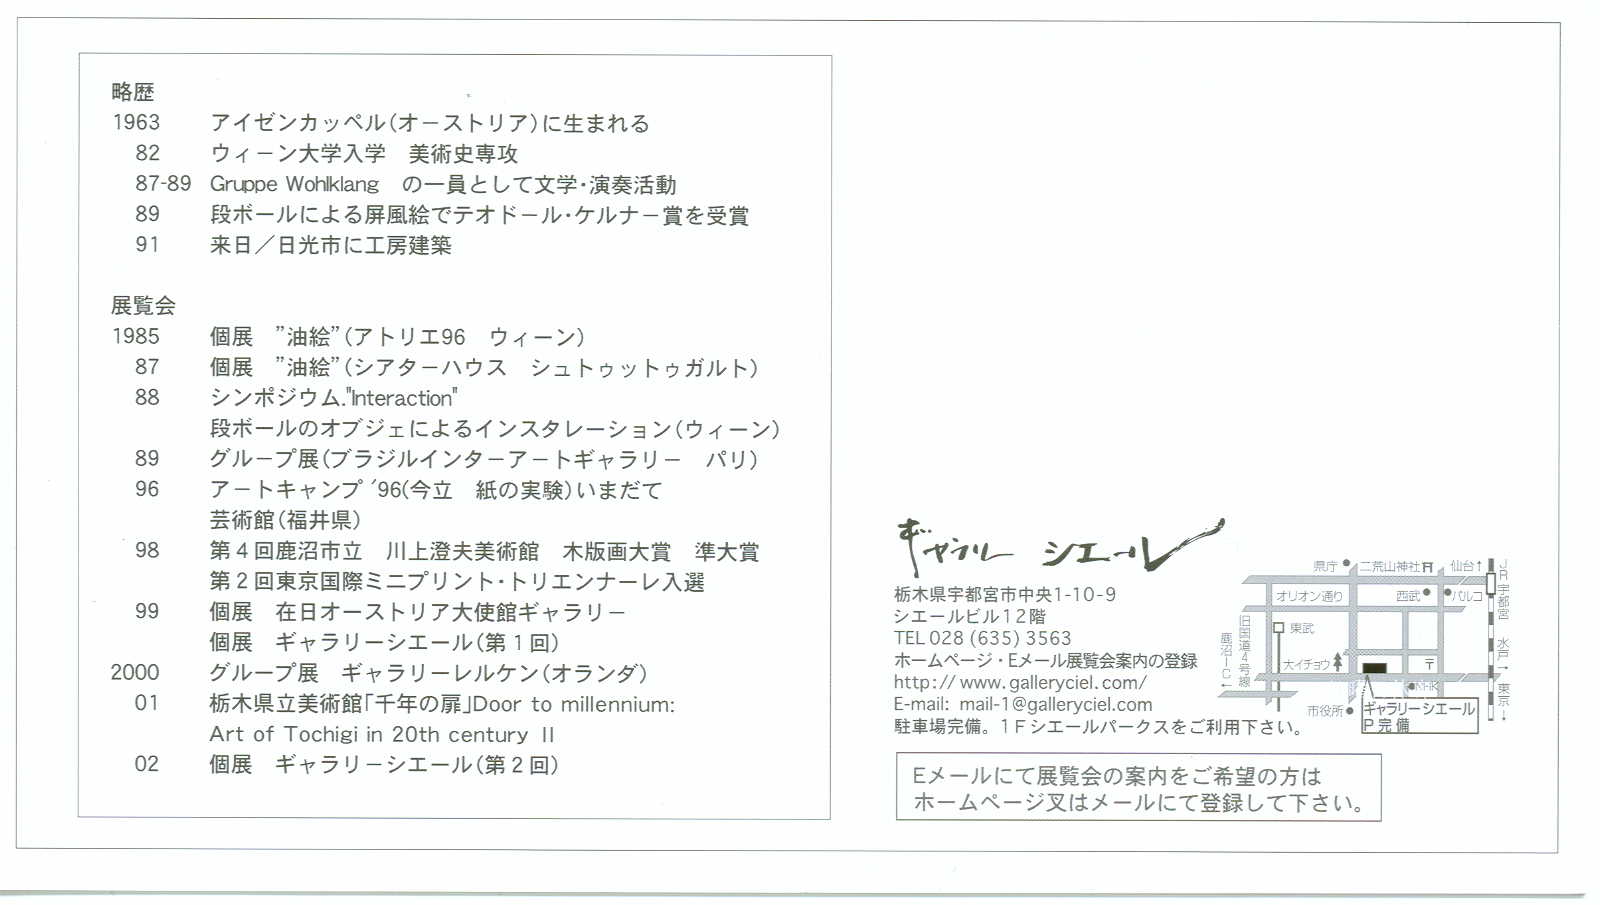 略歴
1963 アイゼンカッペル（オーストリア）に生まれる
82 ウィーン大学入学　美術史専攻
87-89 Gruppe Wohlklang　の一員として文学・演奏活動
89 段ボールによる屏風絵でテオドール・ケルナー賞を受賞
91 来日／日光市に工房建築
展覧会
1985 個展　”油絵”（アトリエ96　ウィーン）
87 個展　”油絵”（シアターハウス　シュトゥットゥガルト）
88 シンポジウム."Interaction"
段ボールのオブジェによるインスタレーション（ウィーン）
89 グループ展（ブラジルインターアートギャラリー　パリ）
96 アートキャンプ ´96(今立　紙の実験）いまだて
芸術館（福井県）
98 第４回鹿沼市立　川上澄夫美術館　木版画大賞　準大賞
第２回東京国際ミニプリント・トリエンナーレ入選
99 個展　在日オーストリア大使館ギャラリー
個展　ギャラリーシエール（第１回）
2000 グループ展　ギャラリーレルケン（オランダ）
01 栃木県立美術館「千年の扉」Door to millennium:
Art of Tochigi in 20th century II
02 個展　ギャラリーシエール（第２回）
ギャラリー シエール
栃木県宇都宮市中央1-10-9
シエールビル12階
TEL 028 (635) 3563
ホームページ・Eメール展覧会案内の登録
http://www.galleryciel.com/
E-mail: mail-1@galleryciel.com
駐車場完備。１Fシエールパークスをご利用下さい。
県庁
二荒山神社
仙台↑
JR宇都宮
オリオン通り
西武
パルコ
東武
旧国道4号線
鹿沼IC↓
大イチョウ
〒
水戸→
NHK
東京↓
市役所
ギャラリーシエール
P完備
Eメールにて展覧会の案内をご希望の方は
ホームページ又はメールにて登録して下さい。